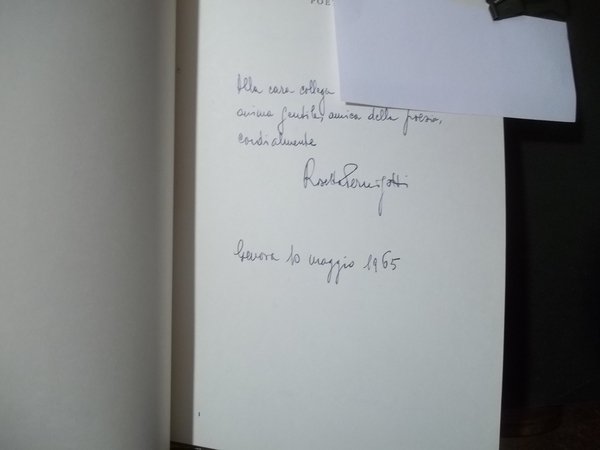 POE
Alla cara collega
anima gentile, amica della poesia,
cordialmente
Rosetta Pernigotti
Genova 10 maggio 1965